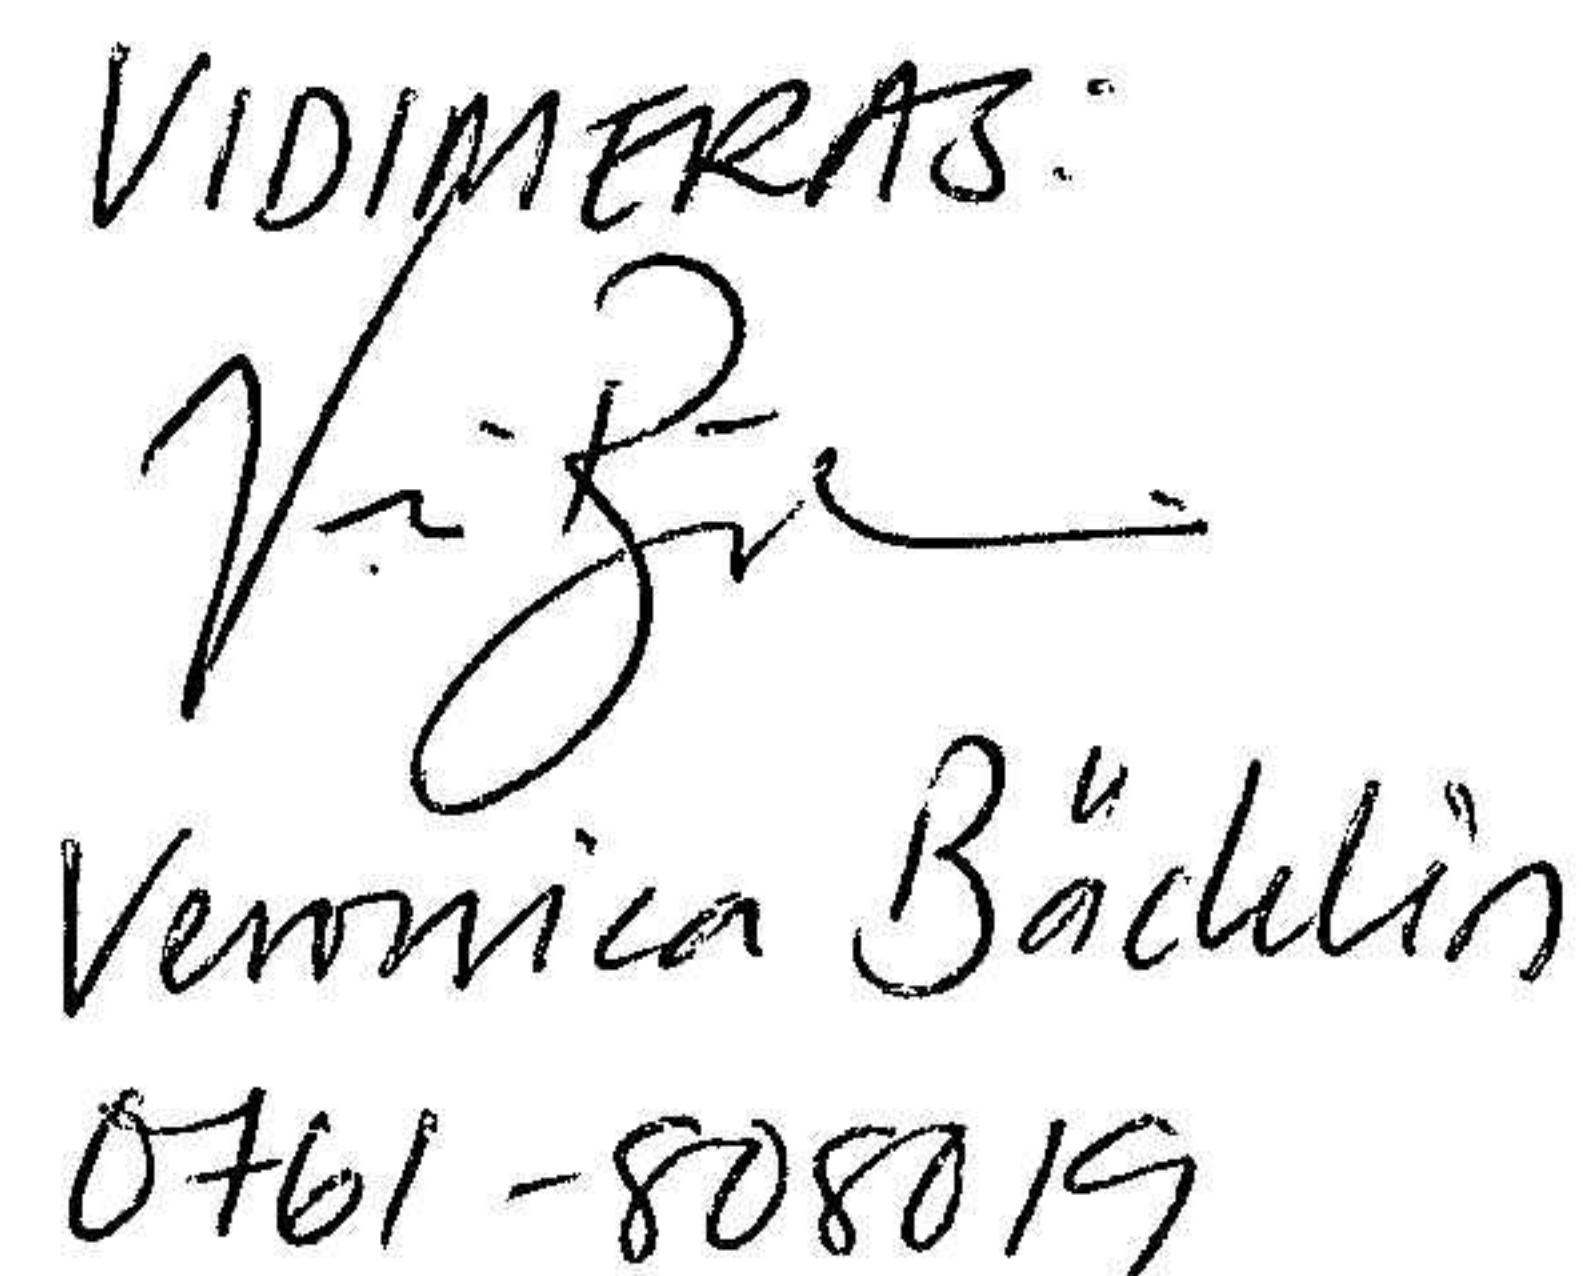 VIDIMERAS:
Veronica Bäcklin
0761-808019